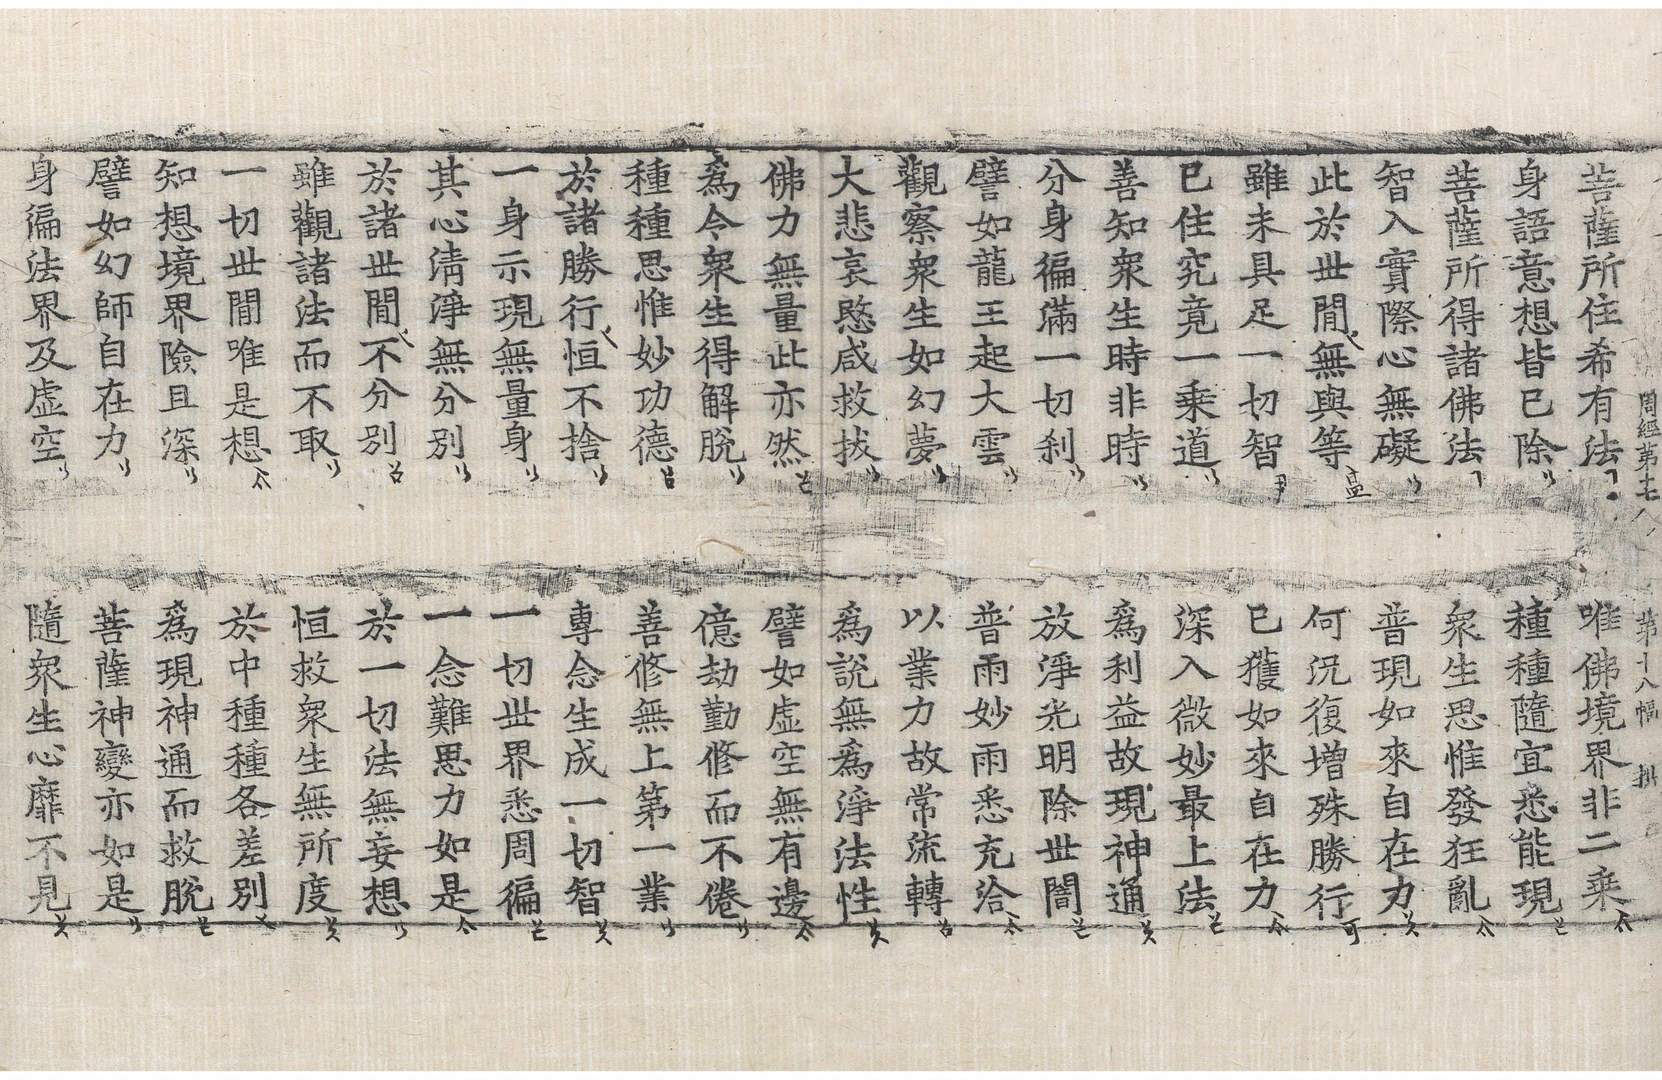 周經第 第十八幅
菩薩所住希有法 唯佛境界非二乘
身語意想皆已除 種種隨宜悉能現
菩薩所得諸佛法 衆生思惟發狂亂
智入實際心無礙 普現如來自在力
此於世間無與等 何況復增殊勝行
雖未具足一切智 已獲如來自在力
已住究竟一乘道 深入微妙最上法
善知衆生時非時 爲利益故現神通
分身徧滿一切刹 放淨光明除世闇
譬如龍王起大雲 普雨妙雨悉充洽
觀察衆生如幻夢 以業力故常流轉
大悲哀愍咸救拔 爲說無爲淨法性
佛力無量此亦然 譬如虛空無有邊
爲令衆生得解脫 億劫勤修而不倦
種種思惟妙功德 善修無上第一業
於諸勝行恒不捨 專念生成一切智
一身示現無量身 一切世界悉周徧
其心淸淨無分別 一念難思力如是
於諸世間不分別 於一切法無妄想
雖觀諸法而不取 恒救衆生無所度
一切世間唯是想 於中種種各差別
知想境界險且深 爲現神通而救脫
譬如幻師自在力 菩薩神變亦如是
身徧法界及虛空 隨衆生心靡不見